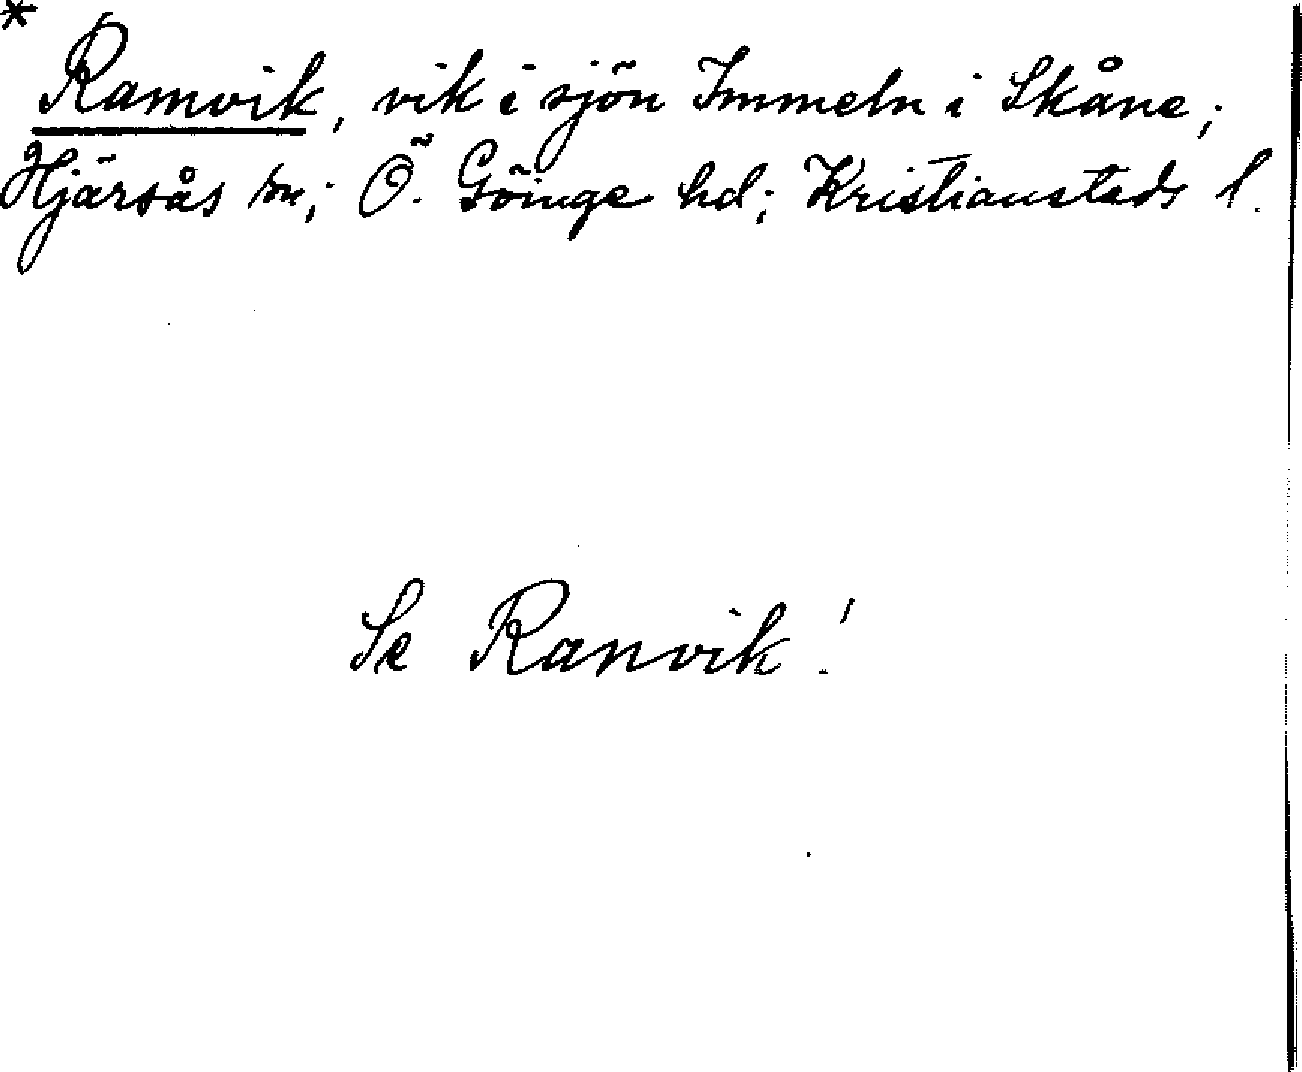 *
Ramvik, vik i sjön Immeln i Skåne;
Hjärsås sn; Ö. Göinge hd; Kristianstads l.
Se Ranvik!